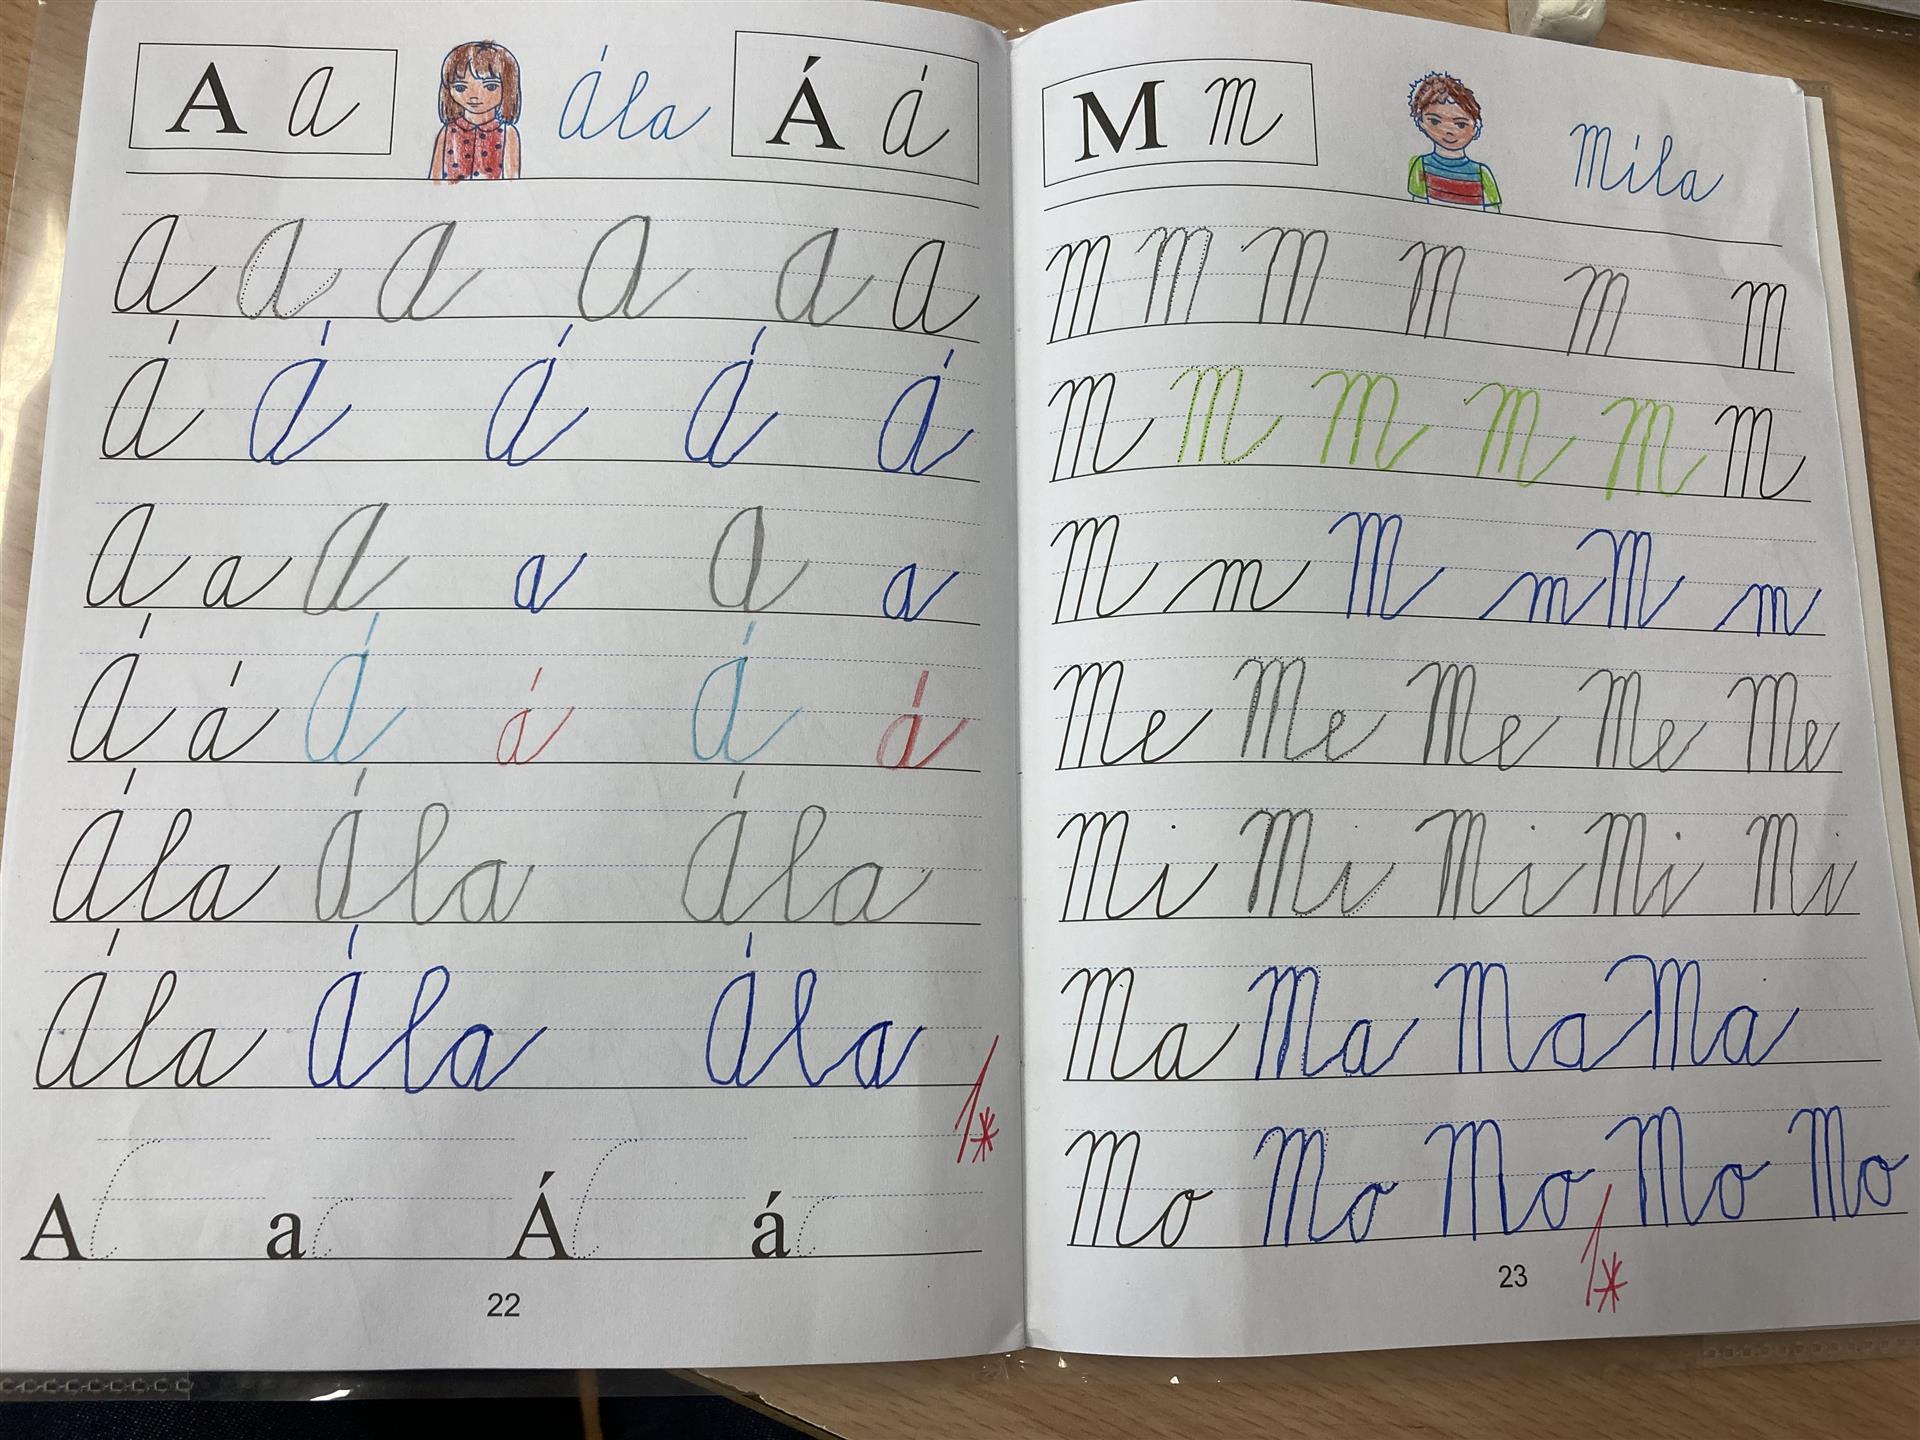 A A Ála Á Á
A A A A A A
Á Á Á Á Á
A a A a A a
Á á Á á Á á
Ála Ála Ála
Ála Ála Ála
1*
A a Á á
22
M M Míla
M M M M M M
M M M M M M
M m M m M m
Me Me Me Me Me
Mi Mi Mi Mi Mi
Ma Ma Ma Ma
Mo Mo Mo Mo Mo
23
1*